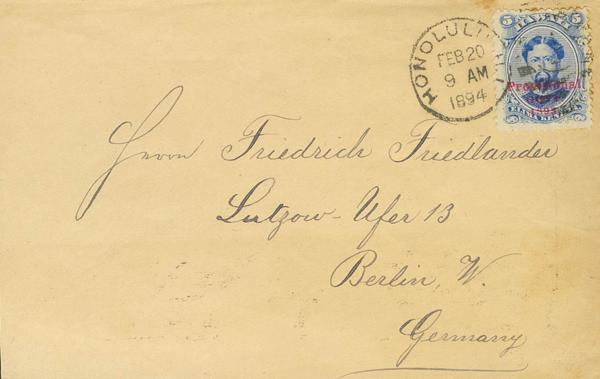 HONOLULU
FEB 20
9 AM
1894
5 5
Provisional
GOVT.
1893
Herrn Friedrich Friedlander
Lutzow-Ufer 13
Berlin, W.
Germany